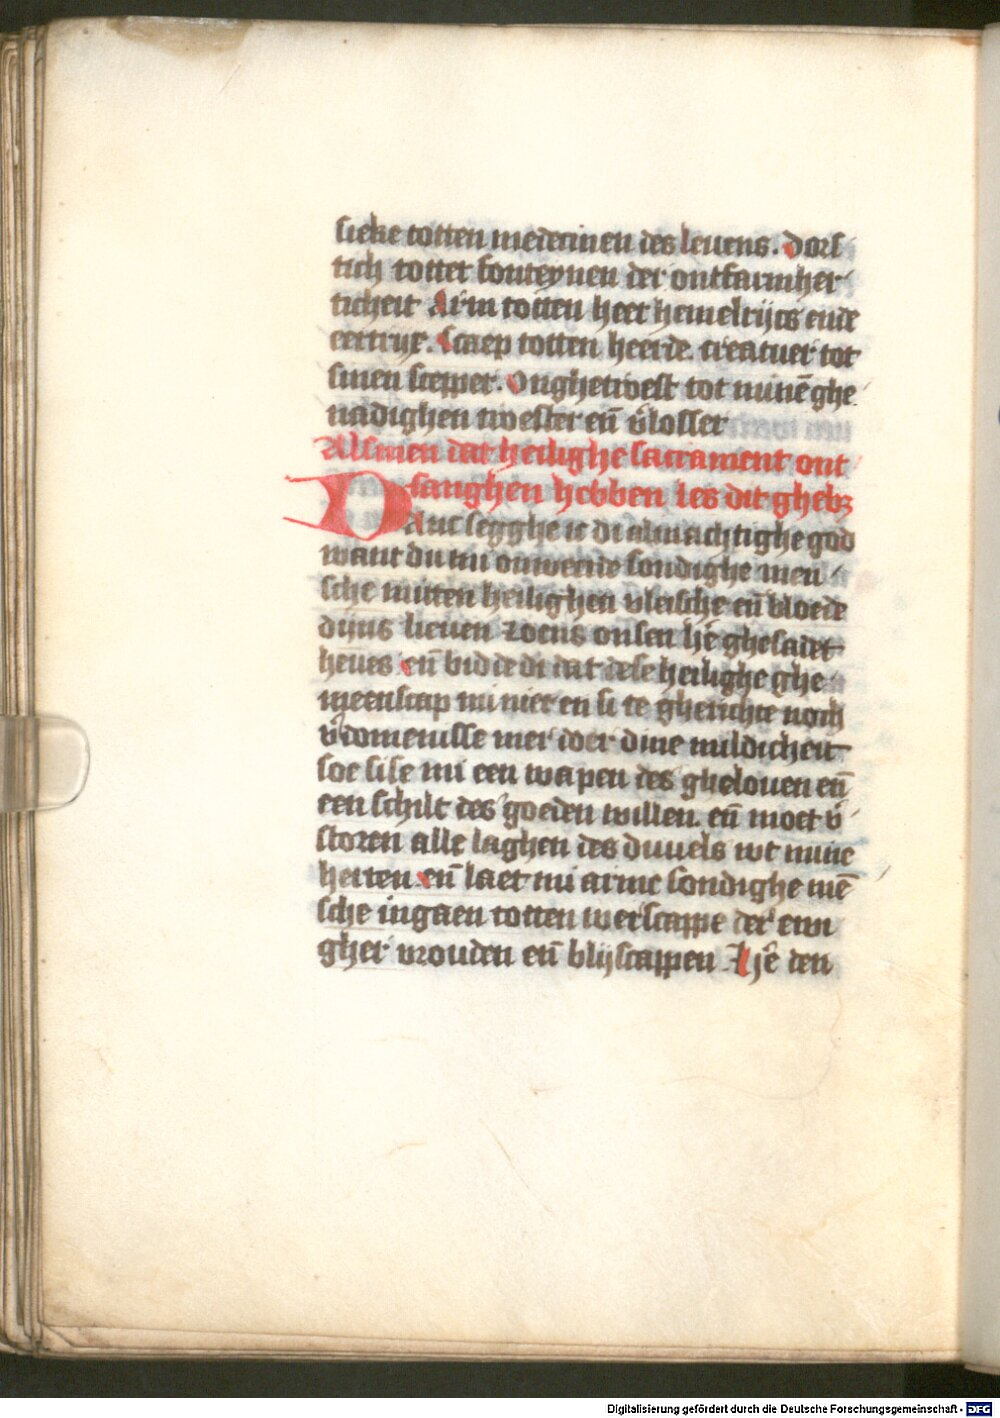 sieke totten medecinen des leuens. Dors
tich tottet fonteynen der ontfarmher
ticheit Arm totten heer hemelrijcs ende
eertryx. Scaep totten heerde. creatuer tot
sinen scepper. Onghetroest tot minē ghe
nadighen troester eñ v̄losser
Alsmen dat heilighe sacrament ont
fanghen hebben les dit ghebꝫ
Danc segghe ic di almachtighe god
want du mi onweerde sondighe men
sche mitten heilighen vleische eñ bloede
dijns lieuen zoens onsen hē ghesadet
heues eñ bidde di dat dese heilighe ghe
meenscap mi niet en si te gherichte noch
v̄domenisse mer doer dine mildicheit
soe si se mi een wapen des ghelouen eñ
een schilt des goeden willen. eñ moet v̄
storen alle laghen des duuels wt mine
herten eñ laet mi arme sondighe mē
sche ingaen totten werscappe der ewi
gher vrouden eñ blijscappen
Digitalisierung gefördert durch die Deutsche Forschungsgemeinschaft - DFG